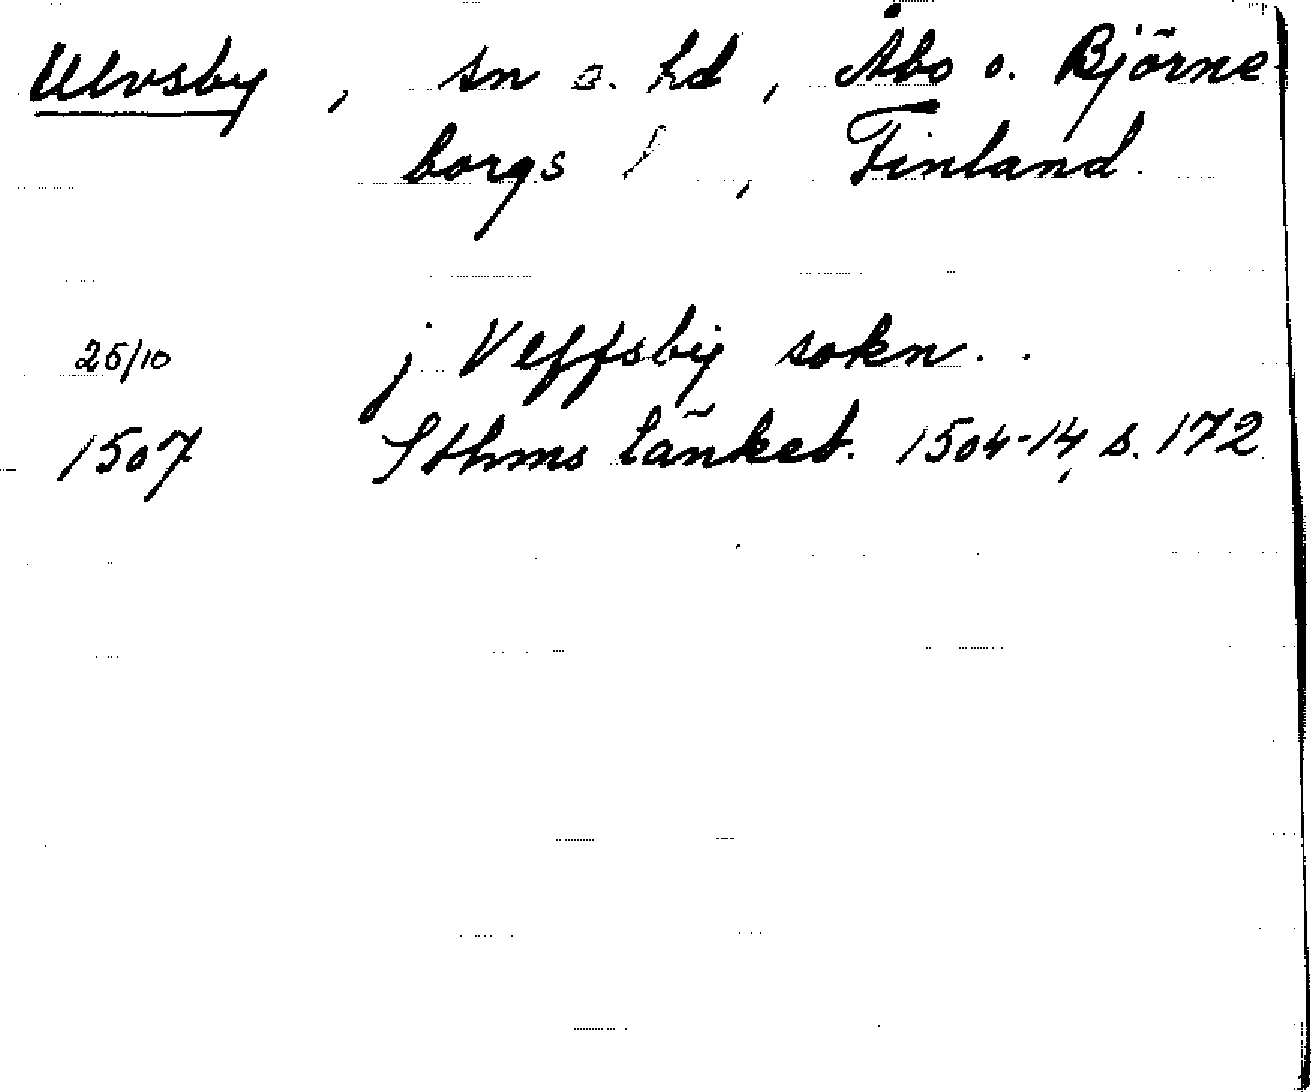 Ulvsby, sn o. hd, Åbo o. Björne-
borgs l, Finland.
25/10 j Vlffsby sokn..
1507 Sthms tänkeb. 1504-14, s. 172